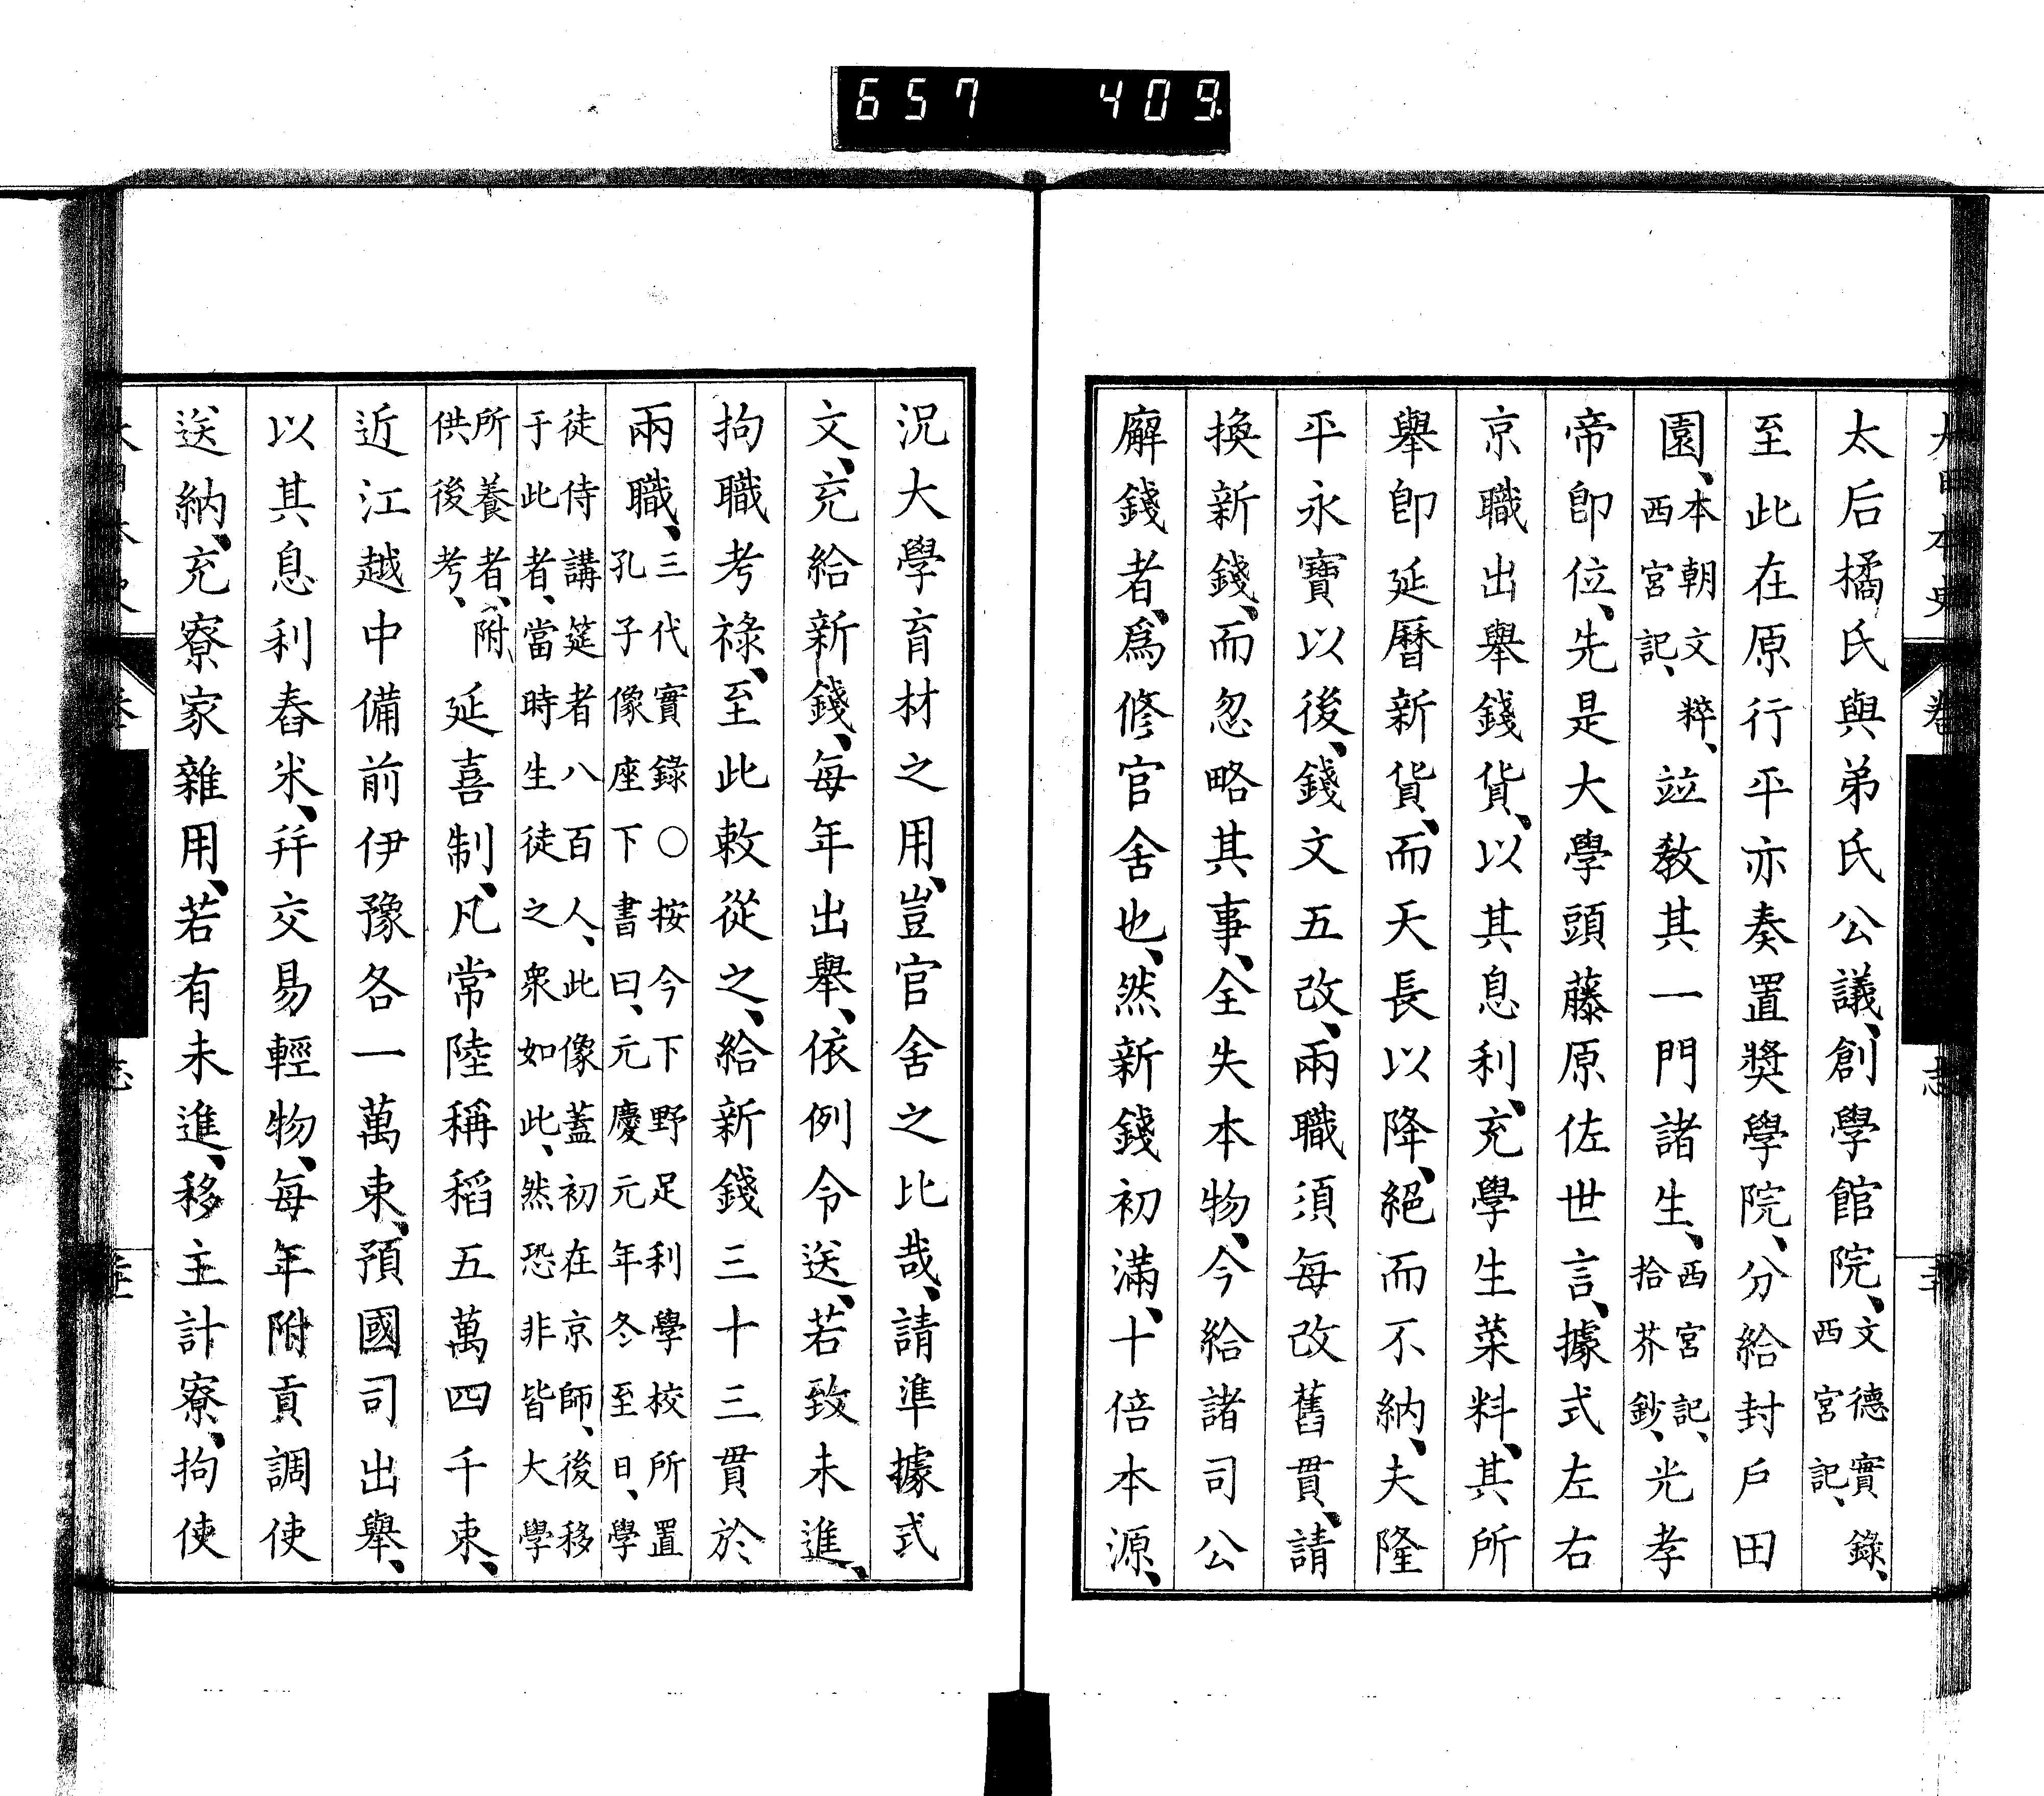 657 409
太后橘氏與弟氏公議、創學館院、文德實錄、西宮記、
至此在原行平亦奏置奬學院、分給封戶田
園、本朝文粹、西宮記、竝教其一門諸生、西宮記、拾芥鈔、光孝
帝卽位、先是大學頭藤原佐世言、據式左右
京職出舉錢貨、以其息利、充學生菜料、其所
舉卽延曆新貨、而天長以降、絕而不納、夫隆
平永寶以後、錢文五改、兩職須每改舊貫、請
換新錢、而忽略其事、全失本物、今給諸司公
廨錢者、爲修官舍也、然新錢初滿、十倍本源、
況大學育材之用、豈官舍之比哉、請準據式
文、充給新錢、每年出舉、依例令送、若致未進、
拘職考祿、至此敕從之、給新錢三十三貫於
兩職、三代實錄○按今下野足利學校所置孔子像座下書曰、元慶元年冬至日、學
徒侍講筵者八百人、此像蓋初在京師、後移于此者、當時生徒之衆如此、然恐非皆大學
所養者、附供後考、延喜制、凡常陸稱稻五萬四千束、
近江越中備前伊豫各一萬束、預國司出舉、
以其息利舂米、幷交易輕物、每年附貢調使
送納、充寮家雜用、若有未進、移主計寮、拘使